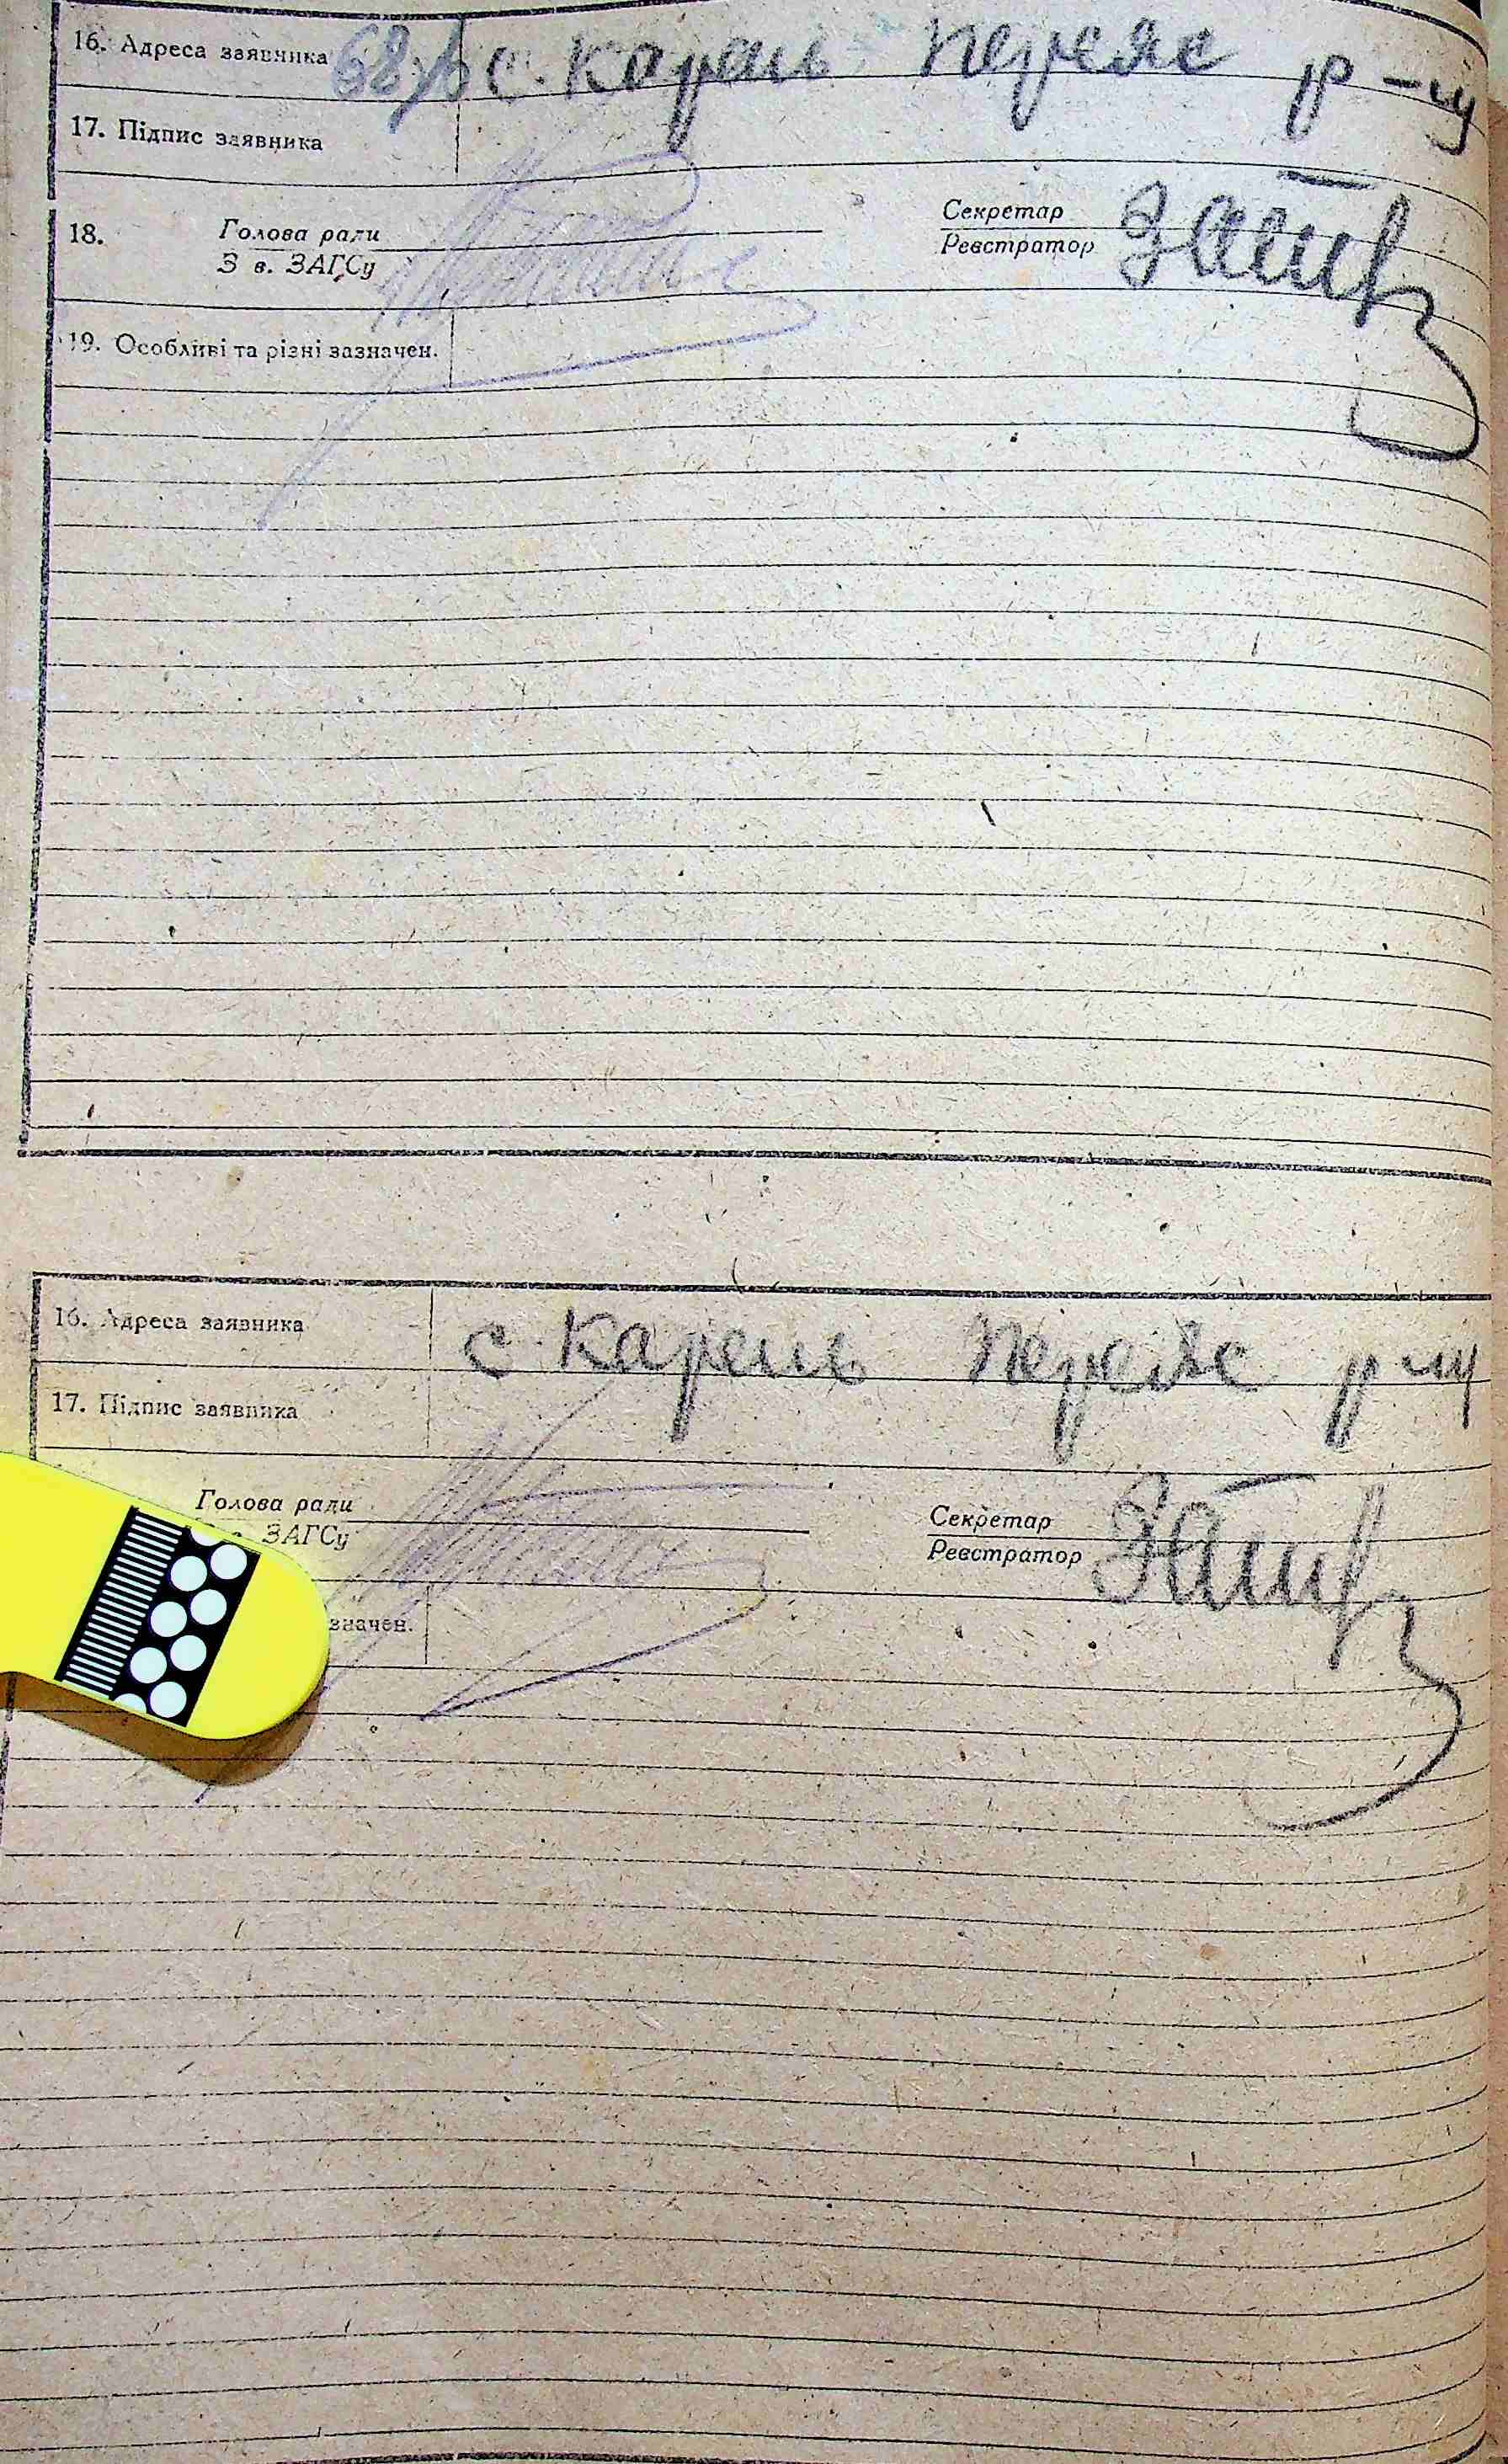 16. Адреса заявника 68 с. Карань Переяс р-ну
17. Підпис заявника
18. Голова ради
З в. ЗАГСу
Секретар
Реєстратор
19. Особливі та різні зазначен.
16. Адреса заявника с. Карань Переяс р-ну
17. Підпис заявника
Голова ради
ЗАГСу
Секретар
Реєстратор
значен.